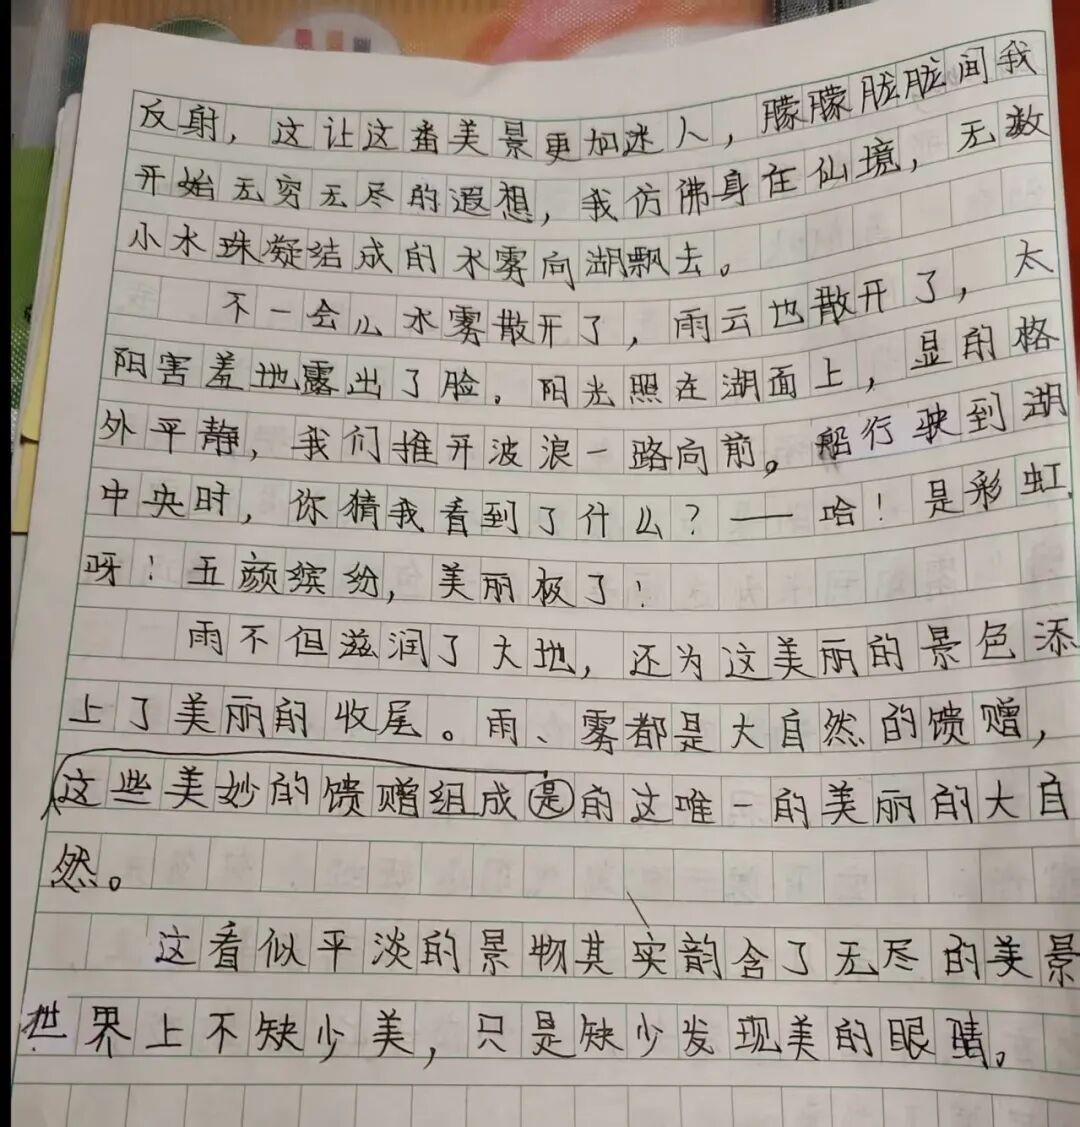 反射，这让这番美景更加迷人，朦朦胧胧间我
开始无穷无尽的遐想，我仿佛身在仙境，无数
小水珠凝结成的水雾向湖飘去。
不一会儿水雾散开了，雨云也散开了，太
阳害羞地露出了脸。阳光照在湖面上，显的格
外平静，我们推开波浪一路向前。船行驶到湖
中央时，你猜我看到了什么？——哈！是彩虹
呀！五颜缤纷，美丽极了！
雨不但滋润了大地，还为这美丽的景色添
上了美丽的收尾。雨、雾都是大自然的馈赠，
这些美妙的馈赠组成是的这唯一的美丽的大自
然。
这看似平淡的景物其实韵含了无尽的美景
世界上不缺少美，只是缺少发现美的眼睛。